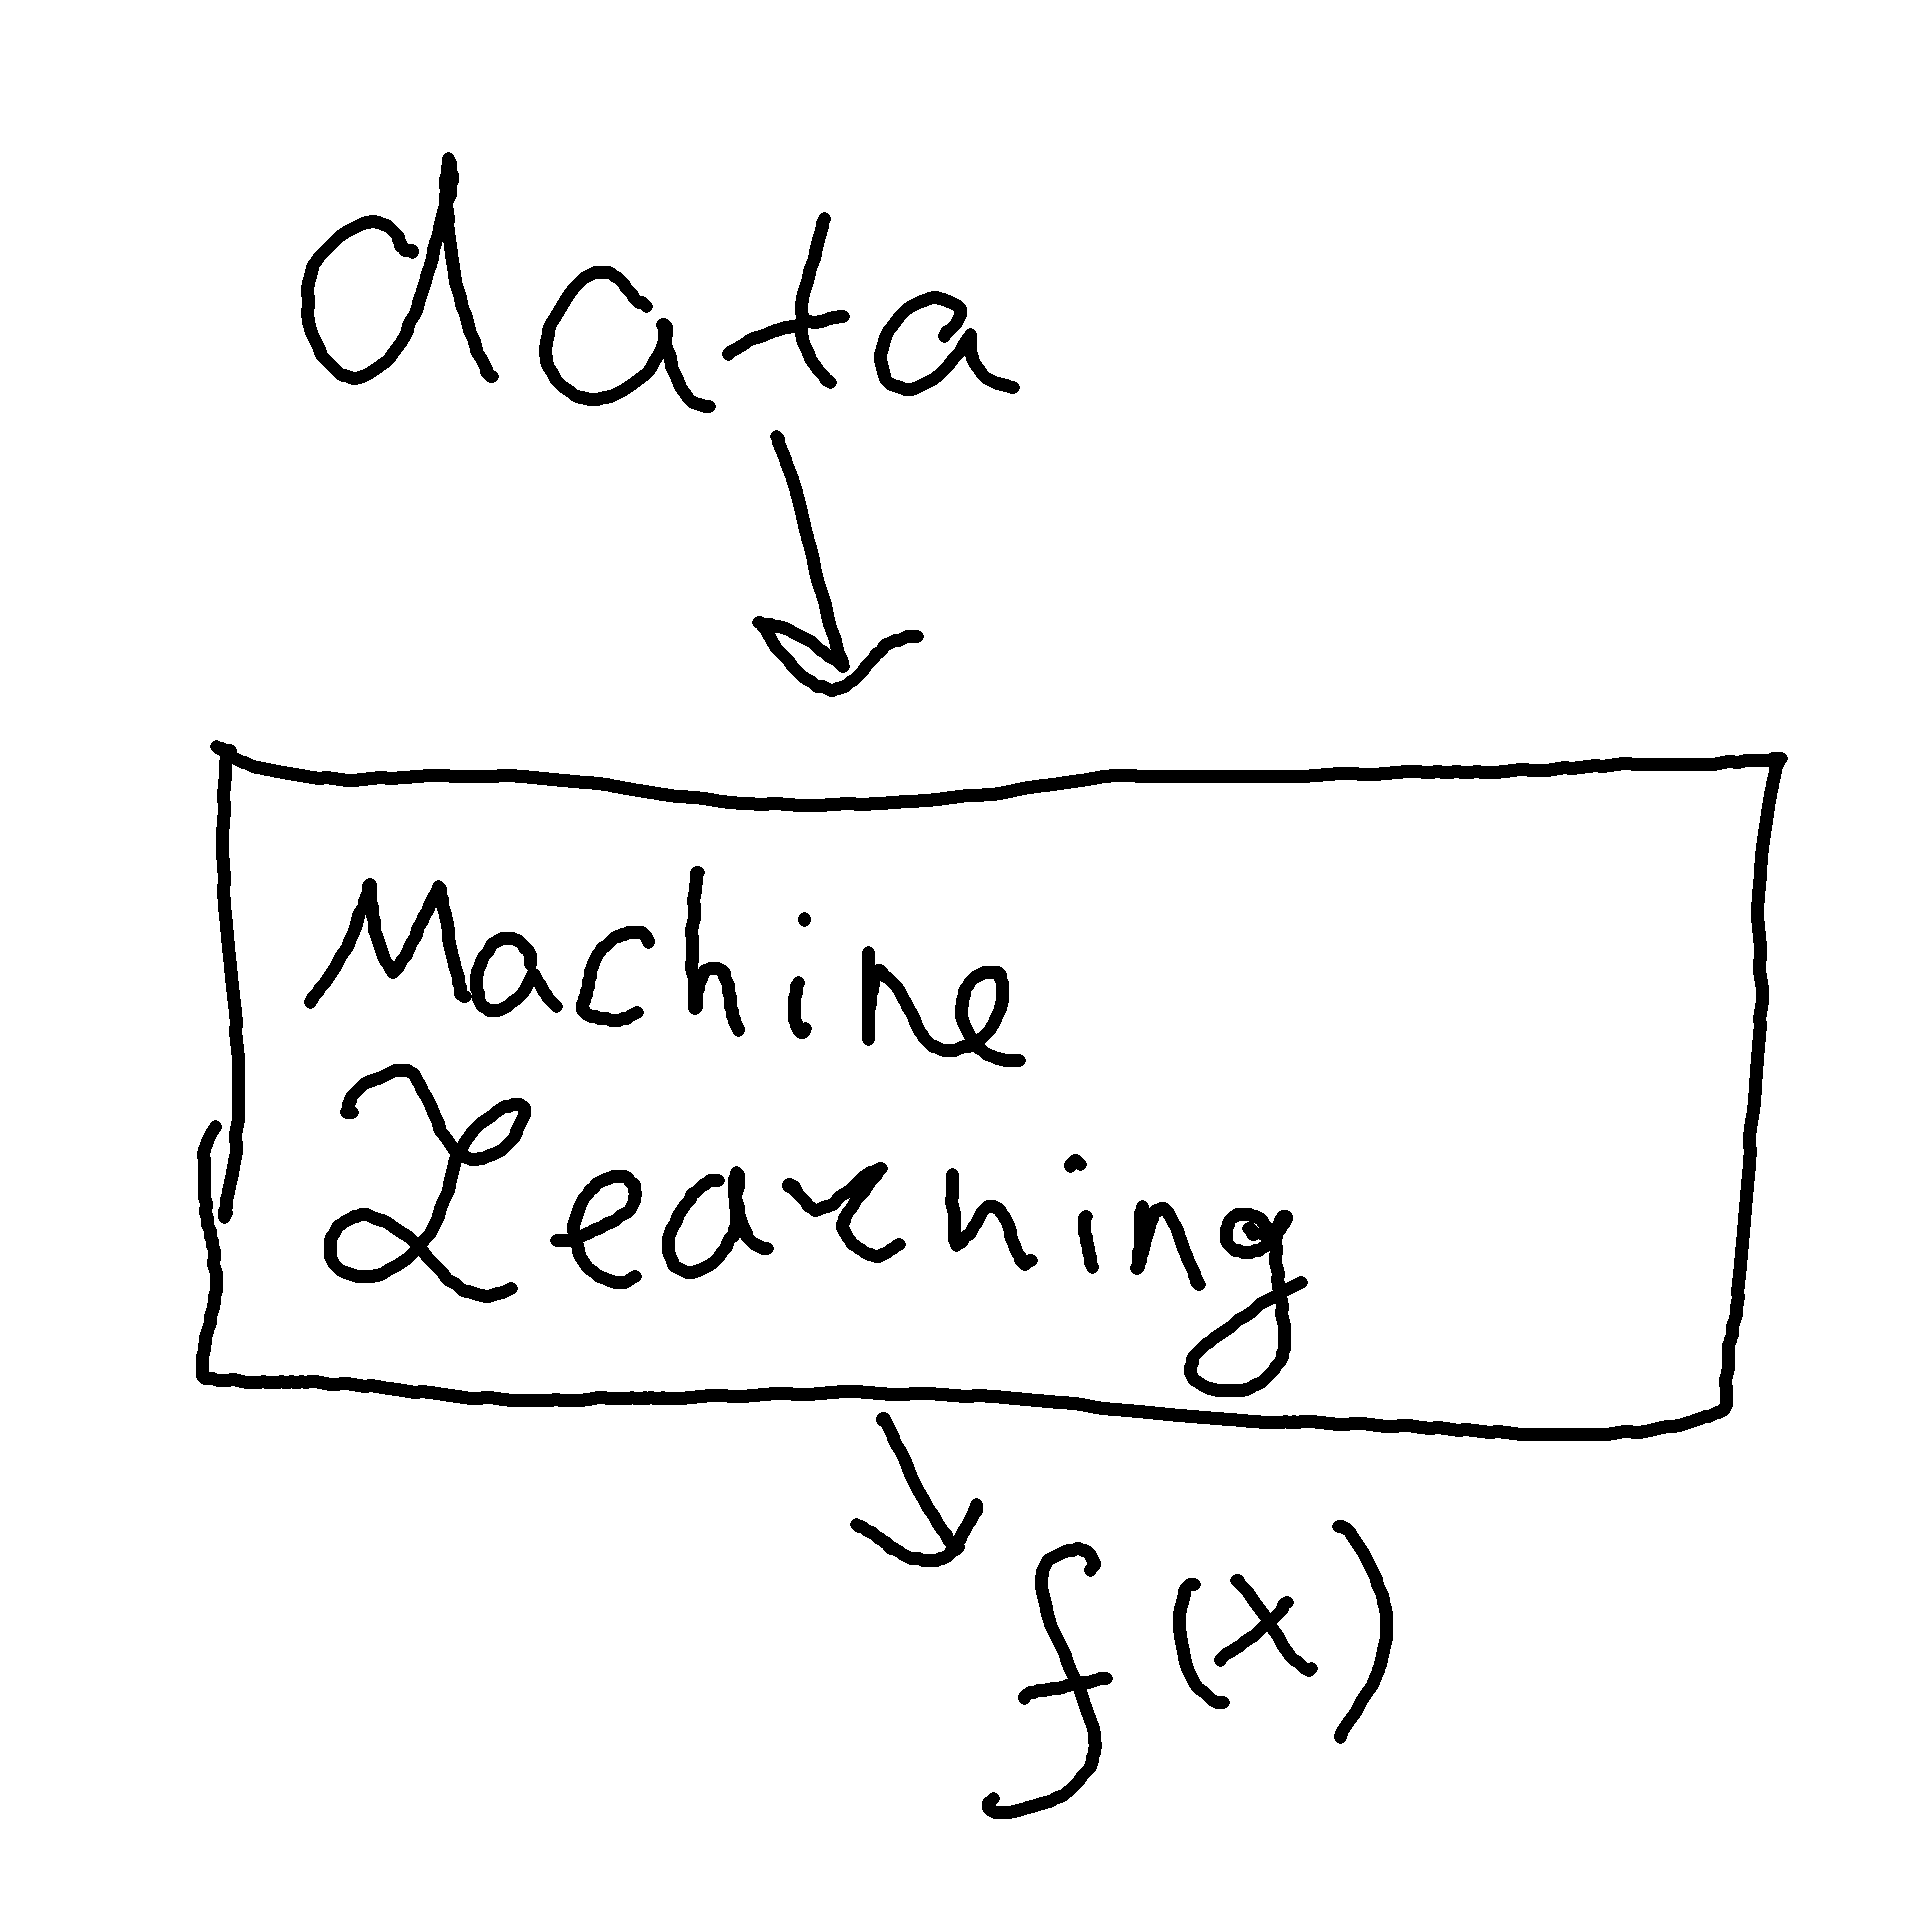 data
Machine
Learning
f(x)